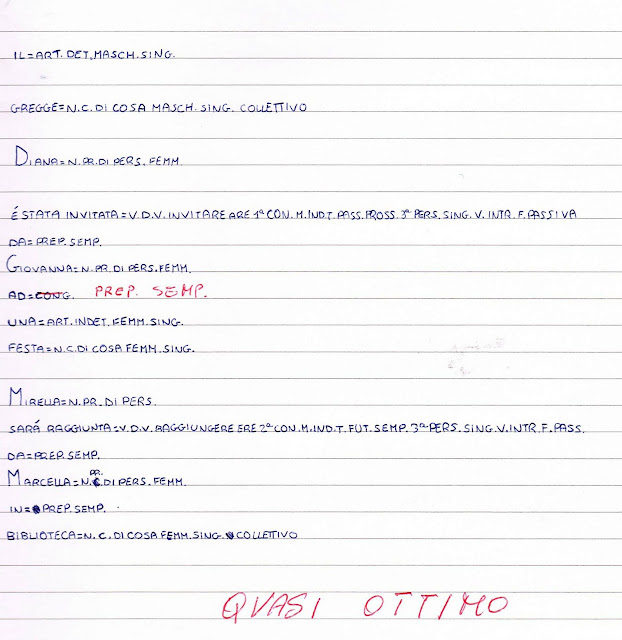 IL=ART.DET.MASCH.SING.
GREGGE=N.C.DI COSA MASCH.SING. COLLETTIVO
DIANA=N.PR.DI PERS.FEMM.
É STATA INVITATA=V.D.V.INVITARE ARE 1ª CON.M.IND.T.PASS.PROSS.3ª PERS.SING.V.INTR.F.PASSIVA
DA=PREP.SEMP.
GIOVANNA=N.PR.DI PERS.FEMM.
AD=CONG. PREP. SEMP.
UNA=ART.INDET.FEMM.SING.
FESTA=N.C.DI COSA FEMM.SING.
MIRELLA=N.PR.DI PERS.
SARÁ RAGGIUNTA=V.D.V.RAGGIUNGERE ERE 2ª CON.M.IND.T.FUT.SEMP.3ª PERS.SING.V.INTR.F.PASS.
DA=PREP.SEMP.
MARCELLA=N.PR.DI PERS.FEMM.
IN=PREP.SEMP.
BIBLIOTECA=N.C.DI COSA FEMM.SING. COLLETTIVO
QUASI OTTIMO